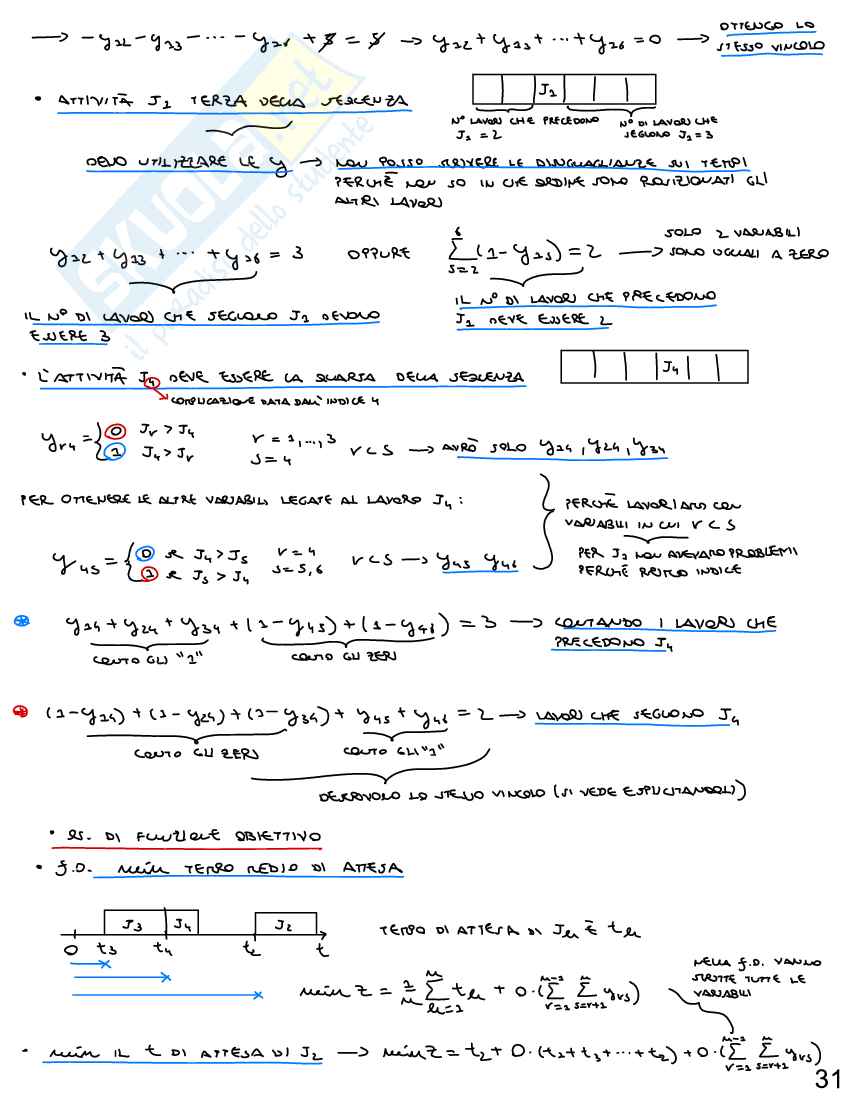 → -y₁₂ - y₁₃ - ... - y₁₆ + 5 = 5 → y₁₂ + y₁₃ + ... + y₁₆ = 0 → OTTENGO LO STESSO VINCOLO
• ATTIVITÀ J₁ TERZA DELLA SEQUENZA
J₁
N° LAVORI CHE PRECEDONO J₁ = 2
N° DI LAVORI CHE SEGUONO J₁ = 3
DEVO UTILIZZARE LE y → NON POSSO SCRIVERE LE DISUGUAGLIANZE SUI TEMPI
PERCHÈ NON SO IN CHE ORDINE SONO POSIZIONATI GLI
ALTRI LAVORI
y₁₂ + y₁₃ + ... + y₁₆ = 3 OPPURE ∑_{s=2}^{6} (1 - y₁s) = 2 → SOLO 2 VARIABILI SONO UGUALI A ZERO
IL N° DI LAVORI CHE SEGUONO J₁ DEVONO
ESSERE 3
IL N° DI LAVORI CHE PRECEDONO
J₁ DEVE ESSERE 2
• L'ATTIVITÀ J₄ DEVE ESSERE LA QUARTA DELLA SEQUENZA
J₄
COMPLICAZIONE DATA DALL'INDICE 4
yr₄ = { 0 Jr > J₄ r = 1,...,3
1 J₄ > Jr s = 4 r < s → AVRÒ SOLO y₁₄, y₂₄, y₃₄
PER OTTENERE LE ALTRE VARIABILI LEGATE AL LAVORO J₄:
y₄s = { 0 se J₄ > Js r = 4
1 se Js > J₄ s = 5,6 r < s → y₄₅ y₄₆
PERCHÈ LAVORIAMO CON
VARIABILI IN CUI r < s
PER J₁ NON AVEVAMO PROBLEMI
PERCHÈ PRIMO INDICE
y₁₄ + y₂₄ + y₃₄ + (1 - y₄₅) + (1 - y₄₆) = 3 → CONTANDO I LAVORI CHE
PRECEDONO J₄
CONTO GLI "1" CONTO GLI ZERI
(1 - y₁₄) + (1 - y₂₄) + (1 - y₃₄) + y₄₅ + y₄₆ = 2 → LAVORI CHE SEGUONO J₄
CONTO GLI ZERI CONTO GLI "1"
DESCRIVONO LO STESSO VINCOLO (SI VEDE ESPLICITANDOLI)
• es. DI FUNZIONE OBIETTIVO
• f.o. min TEMPO MEDIO DI ATTESA
J₃ J₄ J₂
0 t₃ t₄ t₂ t
TEMPO DI ATTESA DI Jh È th
min z = 1/n ∑_{h=1}^{n} th + 0·(∑_{r=1}^{n-1} ∑_{s=r+1}^{n} yrs)
NELLA f.o. VANNO
SCRITTE TUTTE LE
VARIABILI
• min IL t DI ATTESA DI J₂ → min z = t₂ + 0·(t₁ + t₃ + ... + t₂) + 0·(∑_{r=1}^{n-1} ∑_{s=r+1}^{n} yrs)
31
SKUOLA.net
il paradiso dello studente